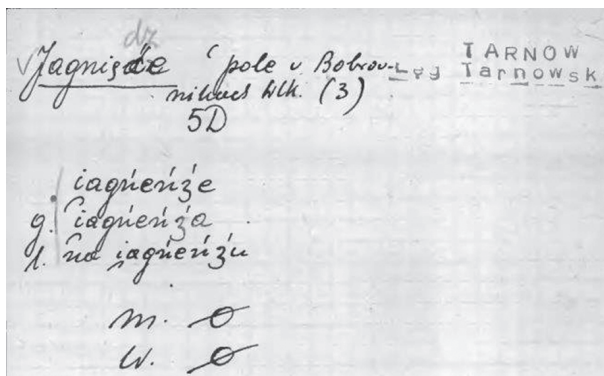 dz
Jagniącze 'pole v Bobrow-
nikach Wlk. (3)
5D
TARNOW
Łęg Tarnowsk
iagńeńʒ́e
g. iagńeńʒ́a
l. na iagńeńʒ́u
m. ø
w. ø